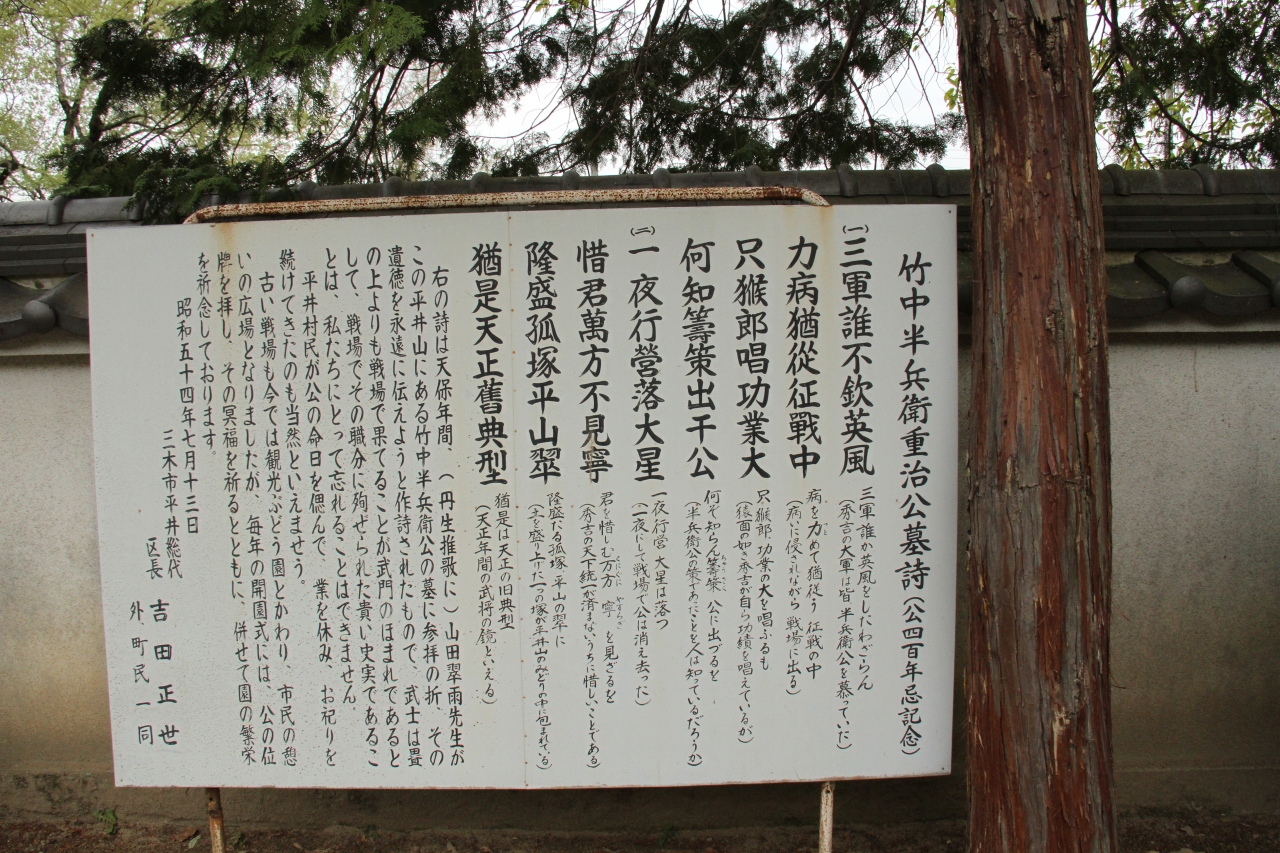 竹中半兵衛重治公墓詩（公四百年忌記念）
(一)三軍誰不欽英風
三軍誰か英風をしたわざらん
（秀吉の大軍は皆半兵衛公を慕っていた）
力病猶從征戰中
病を力めて猶従う 征戦の中
（病いに侵されながら戦場に出る）
只猴郎唱功業大
只猴郎 功業の大を唱ふるも
（猿面の如き秀吉が自ら功績を唱えているが）
何知籌策出千公
何ぞ知らん籌策 公に出づるを
（半兵衛公の策であったことを人は知っているだろうか）
(二)一夜行營落大星
一夜行営 大星は落つ
（一夜にして戦場で公は消え去った）
惜君萬方不見寧
君を惜しむ万方 寧を見ざるを
（秀吉の天下統一が済まないうちに惜しいことである）
隆盛孤塚平山翠
隆盛たる孤塚 平山の翠に
（土を盛り上げた一つの塚が平井山のみどりの中に包まれている）
猶是天正舊典型
猶是は天正の旧典型
（天正年間の武将の鏡といえる）
右の詩は天保年間、（丹生推歌に）山田翠雨先生が
この平井山にある竹中半兵衛公の墓に参拝の折、その
遺徳を永遠に伝えようと作詩されたもので、武士は畳
の上よりも戦場で果てることが武門のほまれであると
して、戦場でその職分に殉ぜられた貴い史実であるこ
とは、私たちにとって忘れることはできません。
平井村民が公の命日を偲んで、業を休み、お祀りを
続けてきたのも当然といえませう。
古い戦場も今では観光ぶどう園とかわり、市民の憩
いの広場となりましたが、毎年の開園式には、公の位
牌を拝し、その冥福を祈るとともに、併せて園の繁栄
を祈念しております。
昭和五十四年七月十三日
三木市平井総代
区長 吉田正世
外町民一同